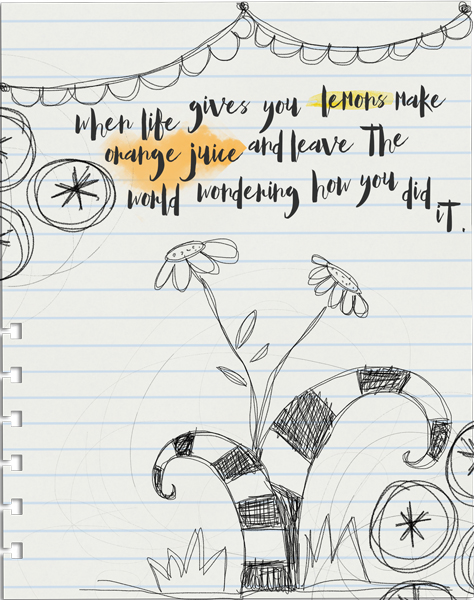 when life gives you lemons make
orange juice and leave The
world wondering how you did
iT.